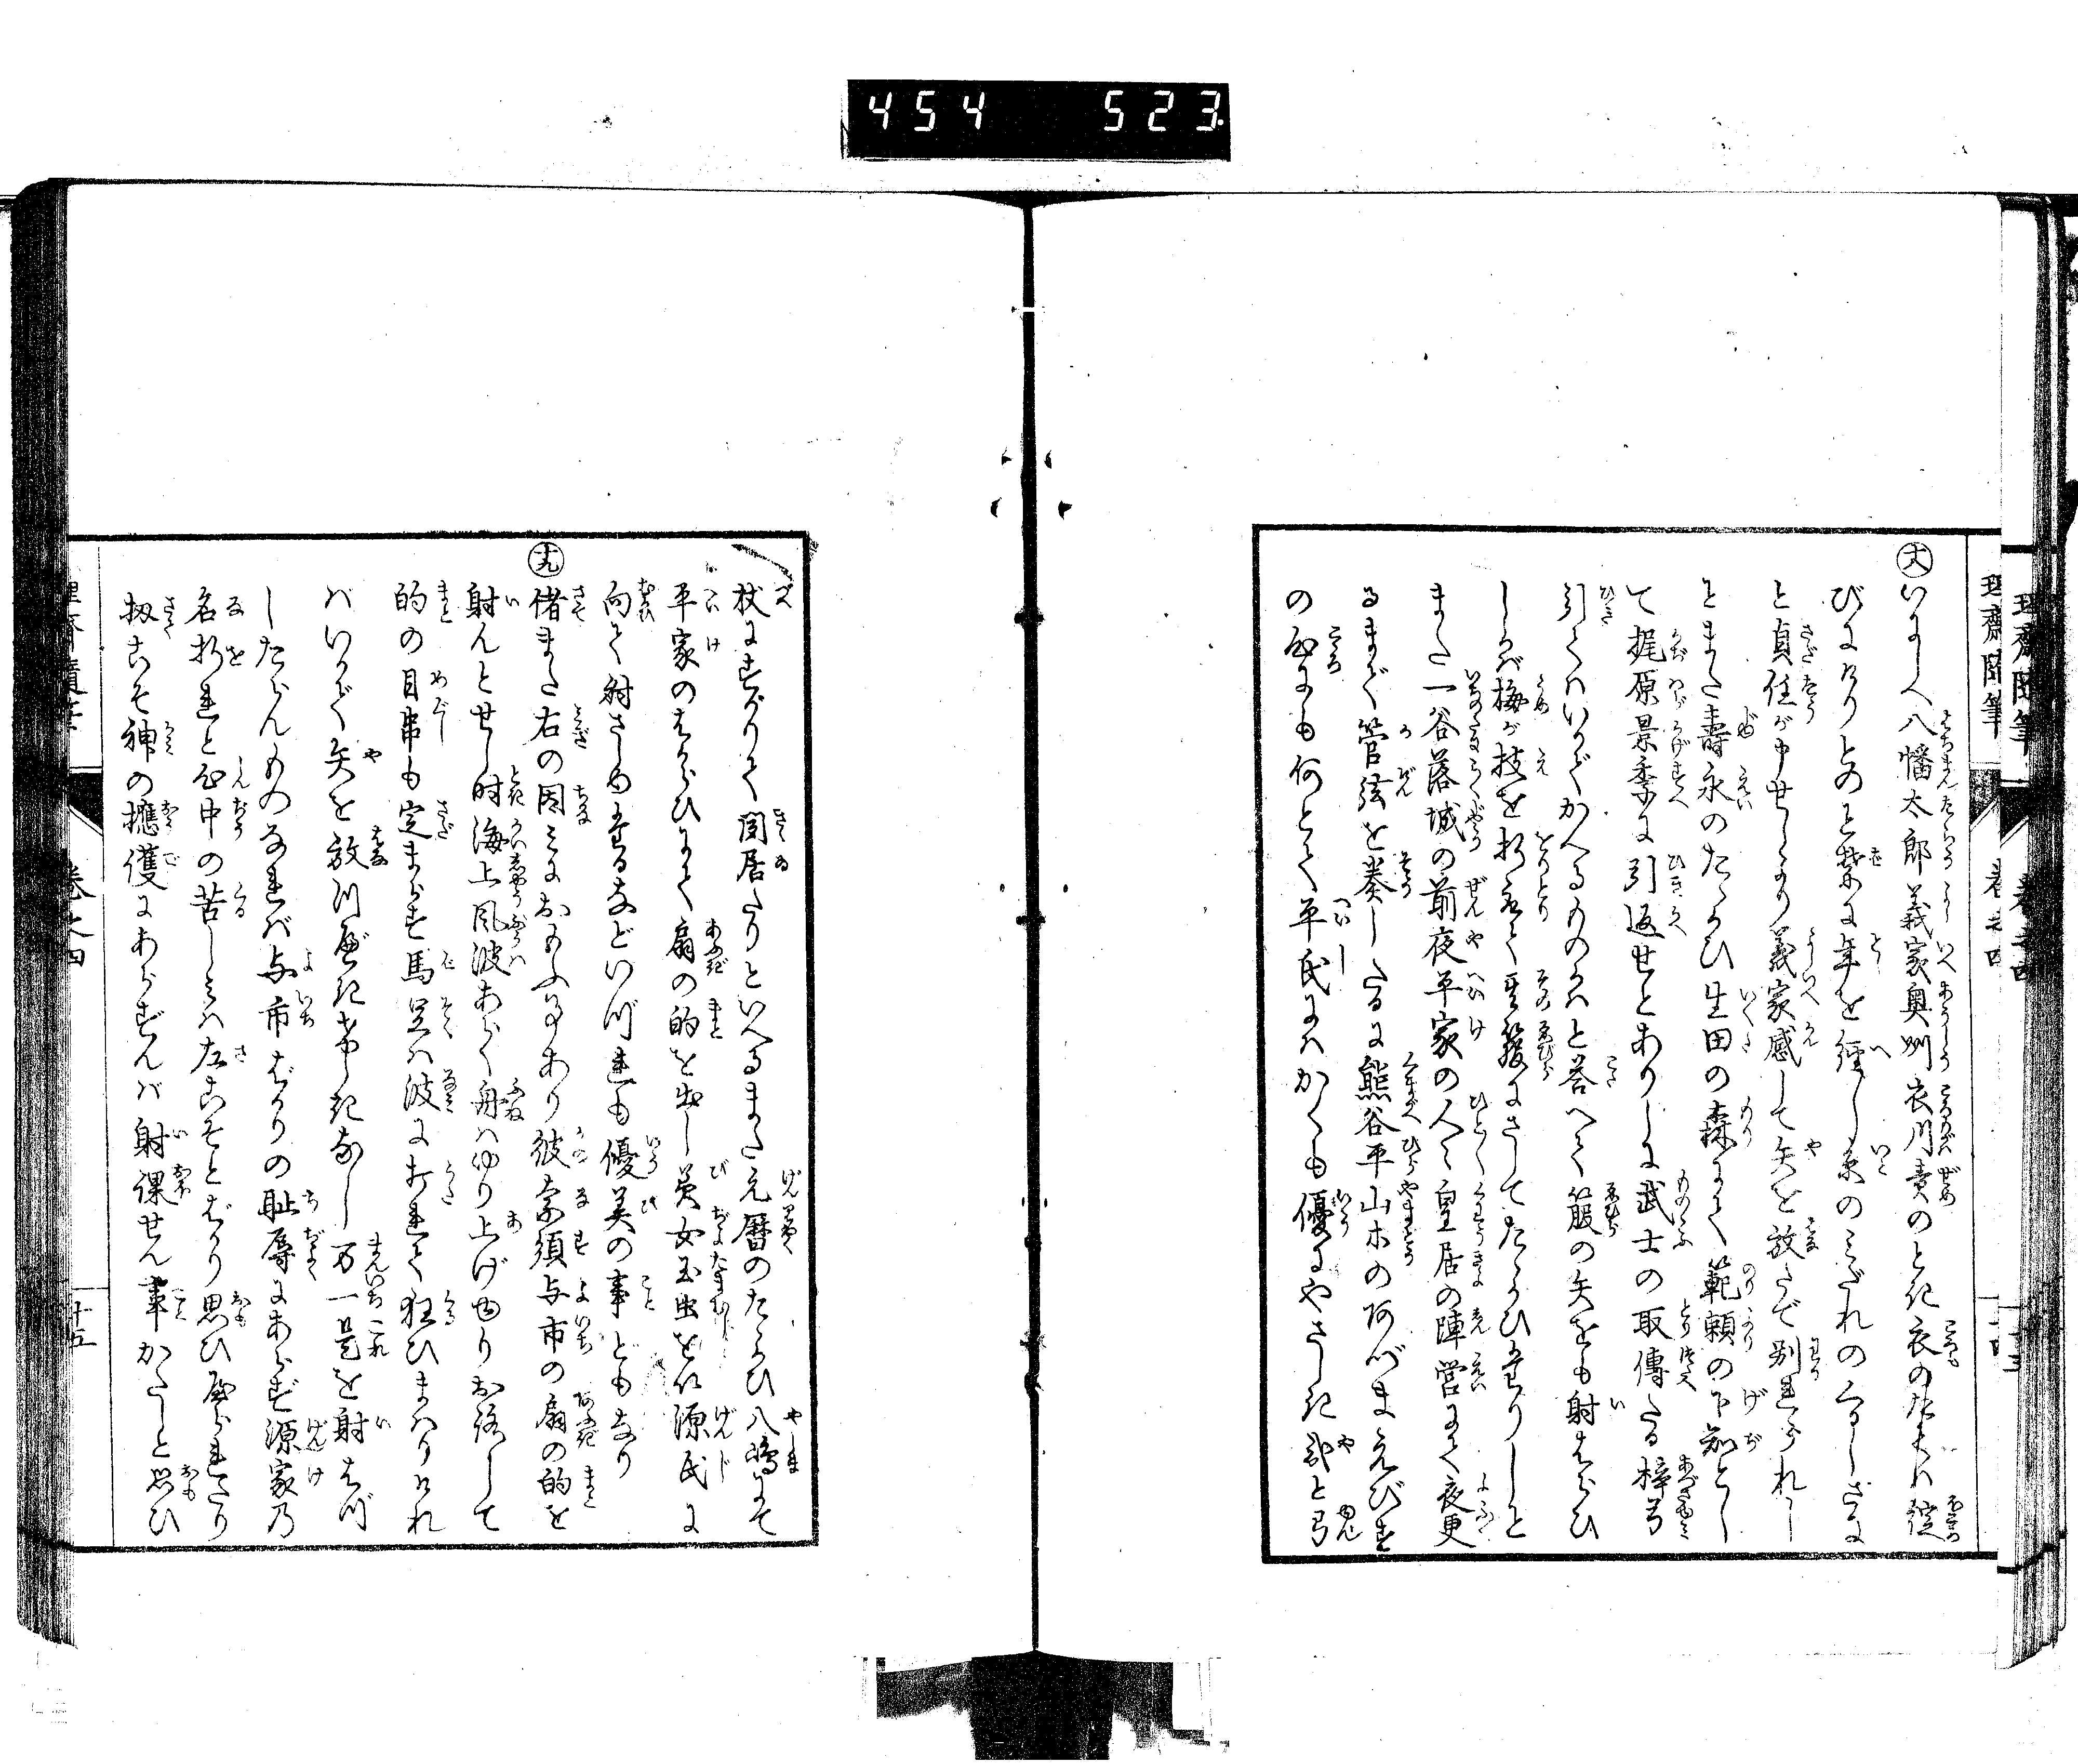 454 523
理齋隨筆
卷之四
十八 いにしへ八幡太郎義家奥州衣川責のとき衣のたては綻
びにけりとのと禁に年を經し糸のみだれのくるしさに
と貞任が申せしより義家感して矢を放たで別れられし
とまた壽永のたゝかひ生田の森にて範頼の下知とし
て梶原景季に引返せとありしに武士の取傳たる梓弓
引てはいかでかへるものかはと答へて箙の矢をも射はらひ
しかば梅が枝を折取て其箙にさしてたゝかひたりしと
また一谷落城の前夜平家の人々皇居の陣営にて夜更
るまで管絃を奏したるに熊谷平山ホの阿づまえびす
の心にも何とて平氏にはかくも優にやさしき哉と弓
杖にすがりて聞居たりといへるまた元暦のたゝかひ八嶋にて
平家のはからひにて扇の的を出し美女玉虫を以源氏に
向て射さしめたるなどいづれも優美の事どもなり
十九 偖また右の因みにおもふ事あり彼奈須与市の扇の的を
射んとせし時海上風波あらく舟はゆり上げゆりお落して
的の目串も定まらず馬足は波に打れて狂ひまはりけれ
バいかで矢を放つべきやうなし万一是を射はづ
したらんものなれば与市ばかりの耻辱にあらず源家乃
名折れと心中の苦しみは左こそとばかり思ひ居られたり
扨こそ神の擁護にあらずんバ射課せん事かたしと思ひ
理齋隨筆
卷之四
十五